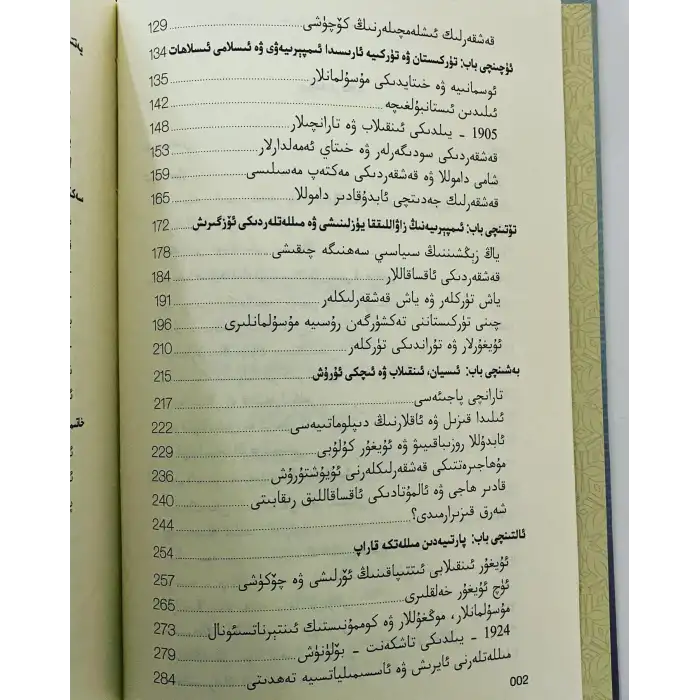 قەشقەرلىك ئىشلەمچىلەرنىڭ كۆچۈشى ..... 129
ئۈچىنچى باب: تۈركىستان ۋە تۈركىيە ئارىسىدا ئىمپېرىيەۋى ۋە ئىسلامى ئىسلاھات 134
ئوسمانىيە ۋە خىتايدىكى مۇسۇلمانلار ..... 135
ئىلىدىن ئىستانبۇلغىچە ..... 142
1905 - يىلدىكى ئىنقىلاب ۋە تارانچىلار ..... 148
قەشقەردىكى سودىگەرلەر ۋە خىتاي ئەمەلدارلار ..... 153
شامى داموللا ۋە قەشقەردىكى مەكتەپ مەسىلىسى ..... 159
قەشقەرلىك جەدىتچى ئابدۇقادىر داموللا ..... 165
تۆتىنچى باب: ئىمپېرىيەنىڭ زاۋاللىققا يۈزلىنىشى ۋە مىللەتلەردىكى ئۆزگىرىش ..... 172
ياڭ زېڭشىننىڭ سىياسىي سەھنىگە چىقىشى ..... 178
قەشقەردىكى ئاقساقاللار ..... 184
ياش تۈركلەر ۋە ياش قەشقەرلىكلەر ..... 191
چىنى تۈركىستاننى تەكشۈرگەن رۇسىيە مۇسۇلمانلىرى ..... 196
ئۇيغۇرلار ۋە تۇراندىكى تۈركلەر ..... 210
بەشىنچى باب: ئىسيان، ئىنقىلاب ۋە ئىچكى ئۇرۇش ..... 215
تارانچى پاجىئەسى ..... 217
ئىلىدا قىزىل ۋە ئاقلارنىڭ دىپلوماتىيەسى ..... 222
ئابدۇللا روزىباقىيېۋ ۋە ئۇيغۇر كۇلۇبى ..... 229
مۇھاجىرەتتىكى قەشقەرلىكلەرنى ئۇيۇشتۇرۇش ..... 236
قادىر ھاجى ۋە ئالمۇتادىكى ئاقساقاللىق رىقابىتى ..... 240
شەرق قىزىرارمىدى؟ ..... 244
ئالتىنچى باب: پارتىيەدىن مىللەتكە قاراپ ..... 254
ئۇيغۇر ئىنقىلابى ئىتتىپاقىنىڭ ئۆرلىشى ۋە چۆكۈشى ..... 257
ئۈچ ئۇيغۇر خەلقلىرى ..... 265
مۇسۇلمانلار، موڭغۇللار ۋە كوممۇنىستىك ئىنتېرناتسىئونال ..... 273
1924 - يىلدىكى تاشكەنت - بۆلۈنۈش ..... 279
مىللەتلەرنى ئايرىش ۋە ئاسسىمىلياتسىيە تەھدىتى ..... 284
002